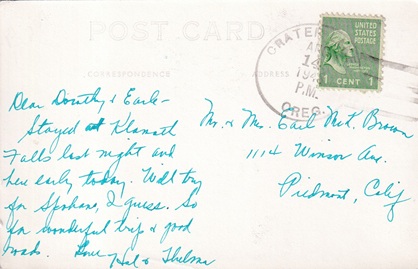 POST CARD
CORRESPONDENCE
ADDRESS
CRATER
14
P.M.
OREG.
UNITED STATES
POSTAGE
1 CENT 1
Dear Dorothy & Earle-
Stayed at Klamath
Falls last night and
here early today. Will try
for Spokane, I guess. So
far wonderful trip & good
roads. Love
Hal & Thelma
Mr. & Mrs. Earl McK. Brown
1114 Winsor Ave.
Piedmont, Calif